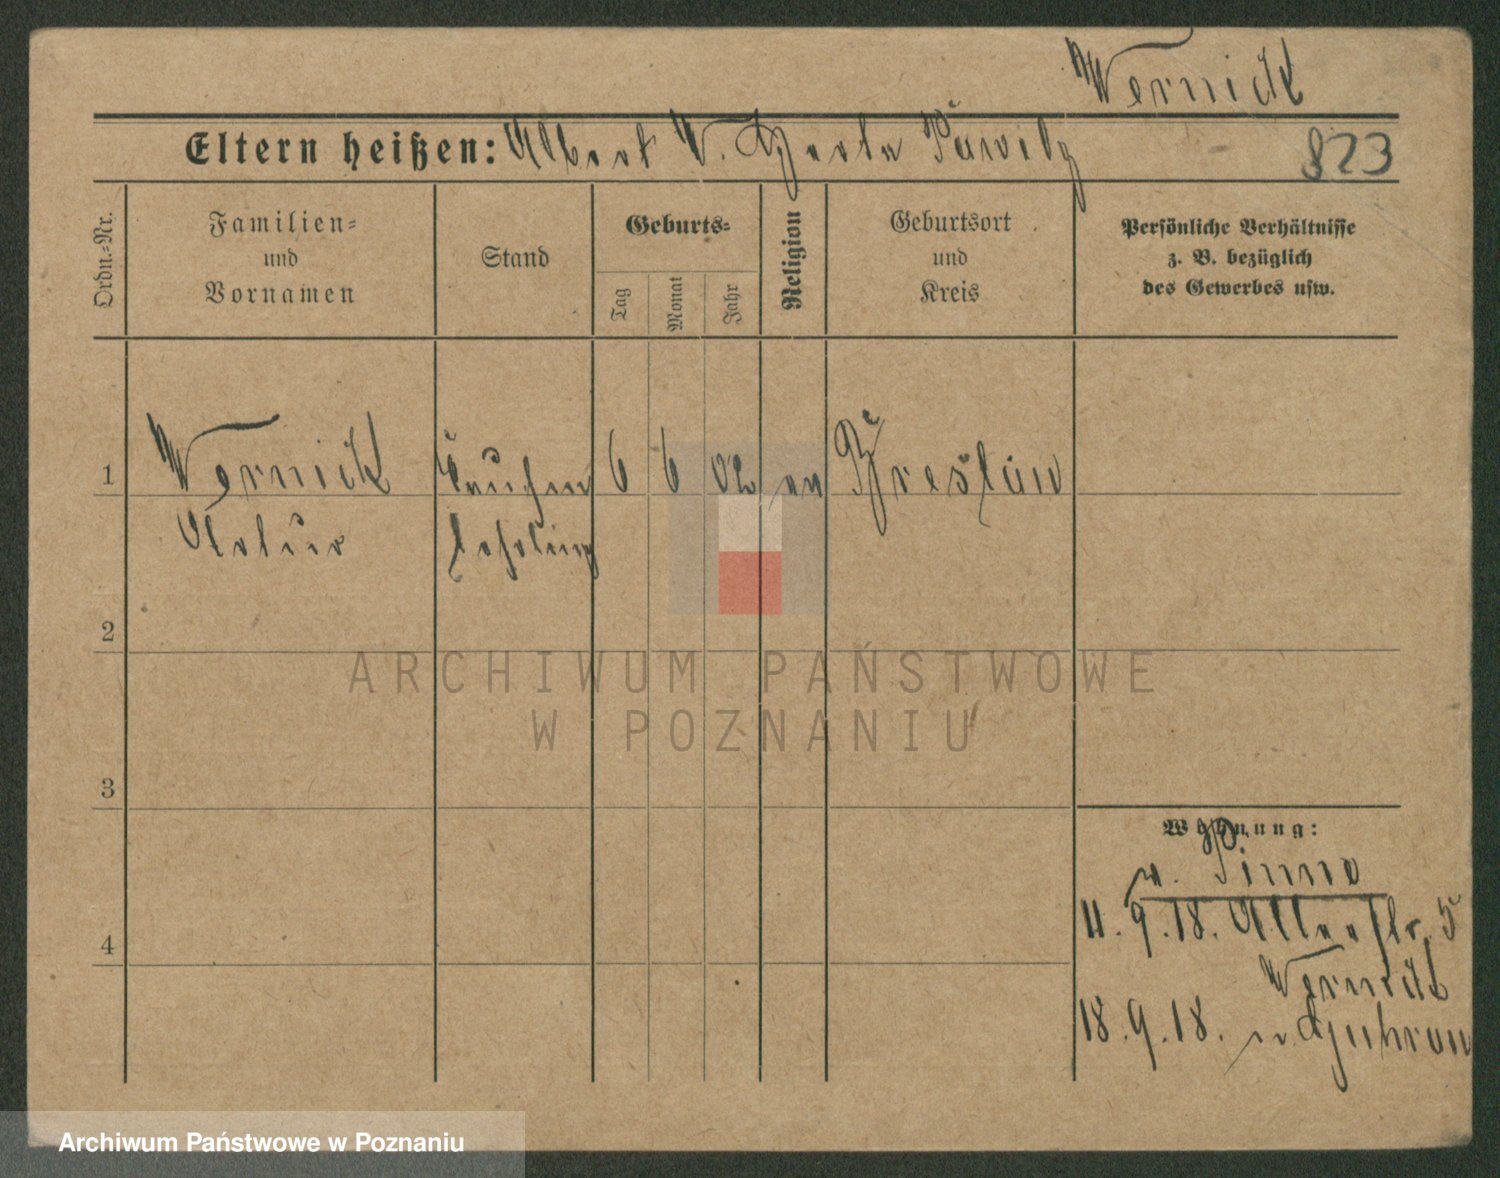 Wernick
Eltern heißen: Albert W.
823
Ordn.-Nr.
Familien-
und
Vornamen
Stand
Geburts-
Tag
Monat
Jahr
Religion
Geburtsort
und
Kreis
Persönliche Verhältnisse
z. B. bezüglich
des Gewerbes usw.
1
Wernick
Artur
lehrling
6
6
02
ev
Breslau
2
ARCHIWUM PAŃSTWOWE
W POZNANIU
3
Wohnung:
v. Pinne
11.9.18. 5
Wernick
18.9.18. n. Guhrau
4
Archiwum Państwowe w Poznaniu